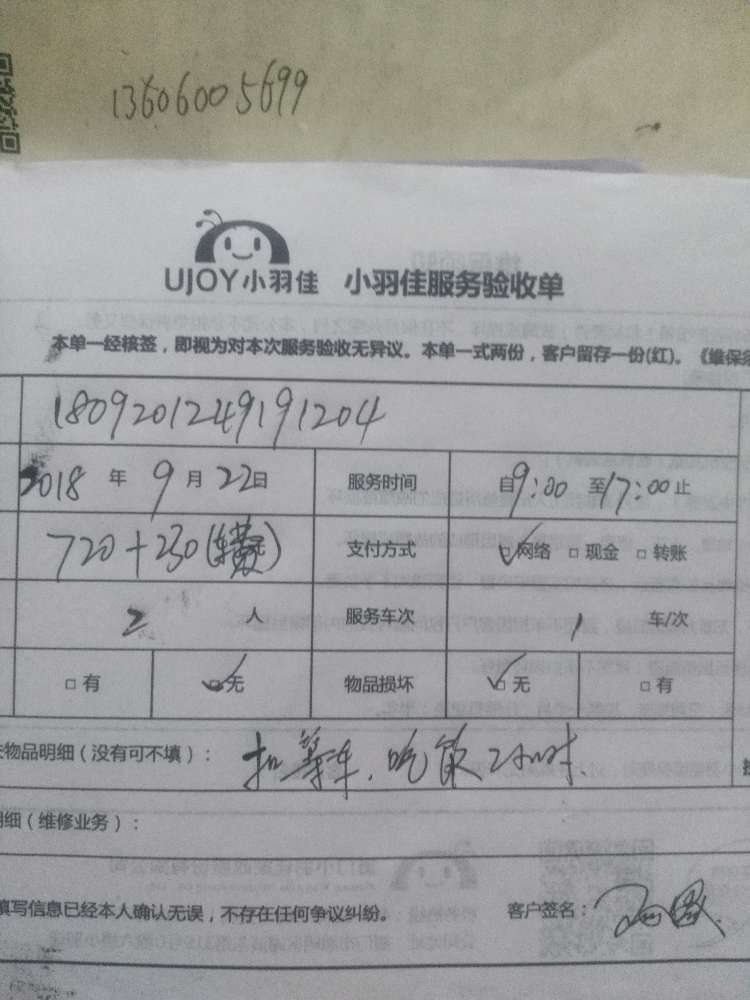 13606005699
UJOY小羽佳 小羽佳服务验收单
本单一经核签，即视为对本次服务验收无异议。本单一式两份，客户留存一份(红)。《维保须
1809201249191204
2018 年 9 月 22日 服务时间 自9:00 至17:00止
720+230( 支付方式 □网络 □现金 □转账
2 人 服务车次 1 车/次
□有 □无 物品损坏 □无 □有
物品明细（没有可不填）： 扣等车、吃饭2小时
细（维修业务）：
填写信息已经本人确认无误，不存在任何争议纠纷。 客户签名：